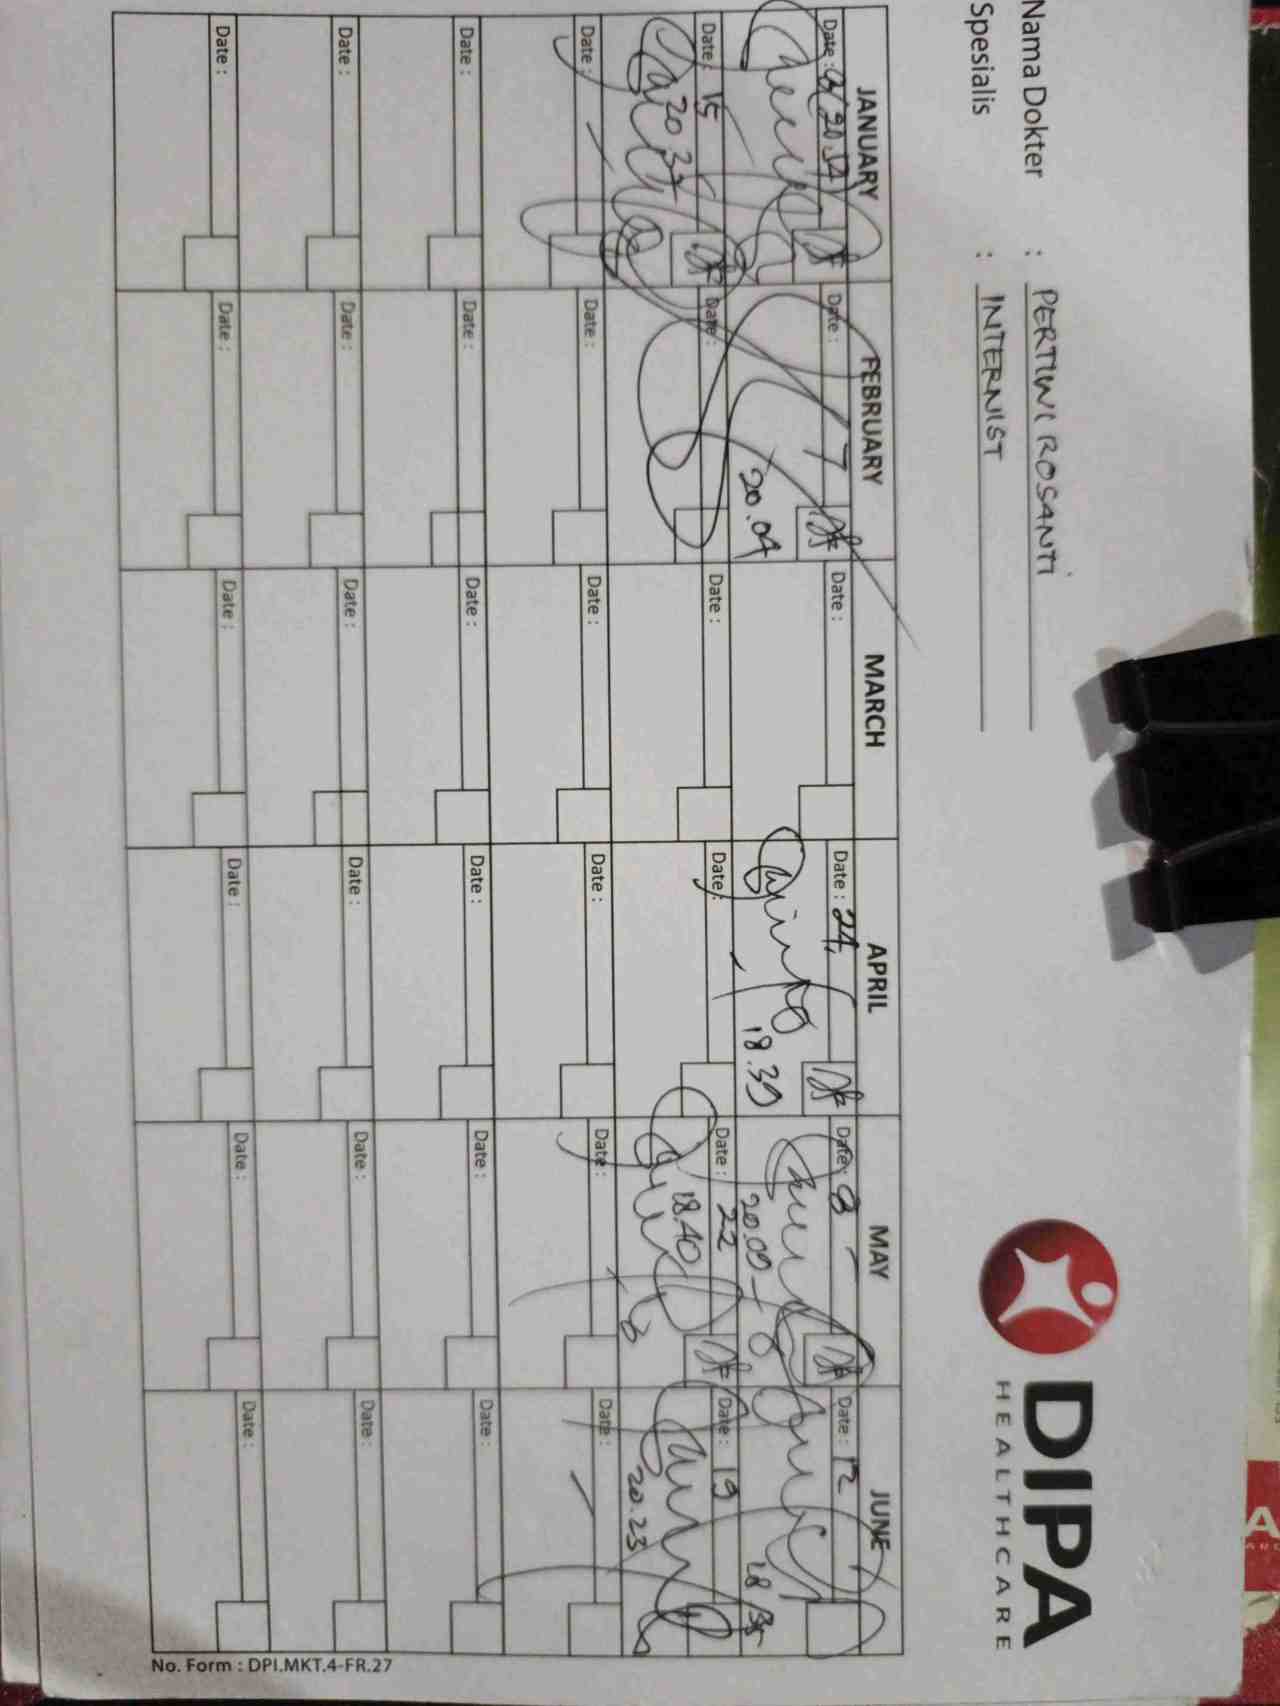 DIPA
HEALTHCARE
Nama Dokter : PERTIWI ROSANTI
Spesialis : INTERNIST
JANUARY FEBRUARY MARCH APRIL MAY JUNE
Date : Date : 7 Date : Date : 24 Date : 8 Date : 12
20.54 20.04 18.39 20.09 18.35
Date : 15 Date : Date : Date : Date : 22 Date : 19
20.37 18.40 20.23
Date : Date : Date : Date : Date : Date :
Date : Date : Date : Date : Date : Date :
Date : Date : Date : Date : Date : Date :
Date : Date : Date : Date : Date : Date :
No. Form : DPI.MKT.4-FR.27